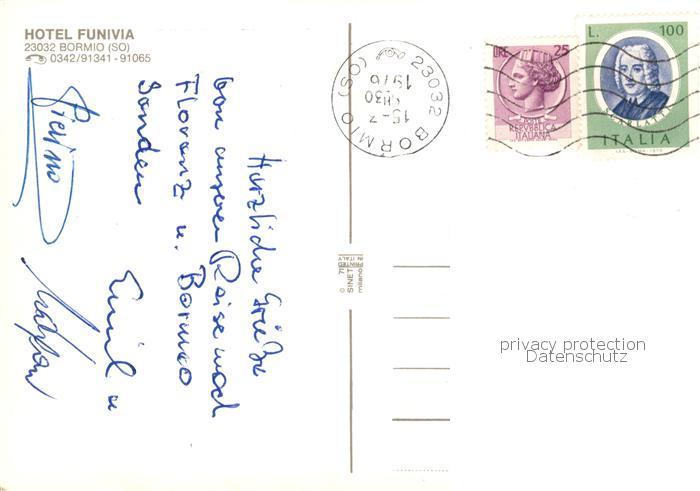 HOTEL FUNIVIA
23032 BORMIO (SO)
0342/91341 - 91065
Herzliche Grüße
von unserer Reise nach
Florenz u. Bormio
senden
Emil u
Pierino
23032 BORMIO (SO)
15-7
1976
LIRE 25
REPUBBLICA
ITALIANA
L. 100
ITALIA
SINET
milano
PRINTED
IN ITALY
privacy protection
Datenschutz